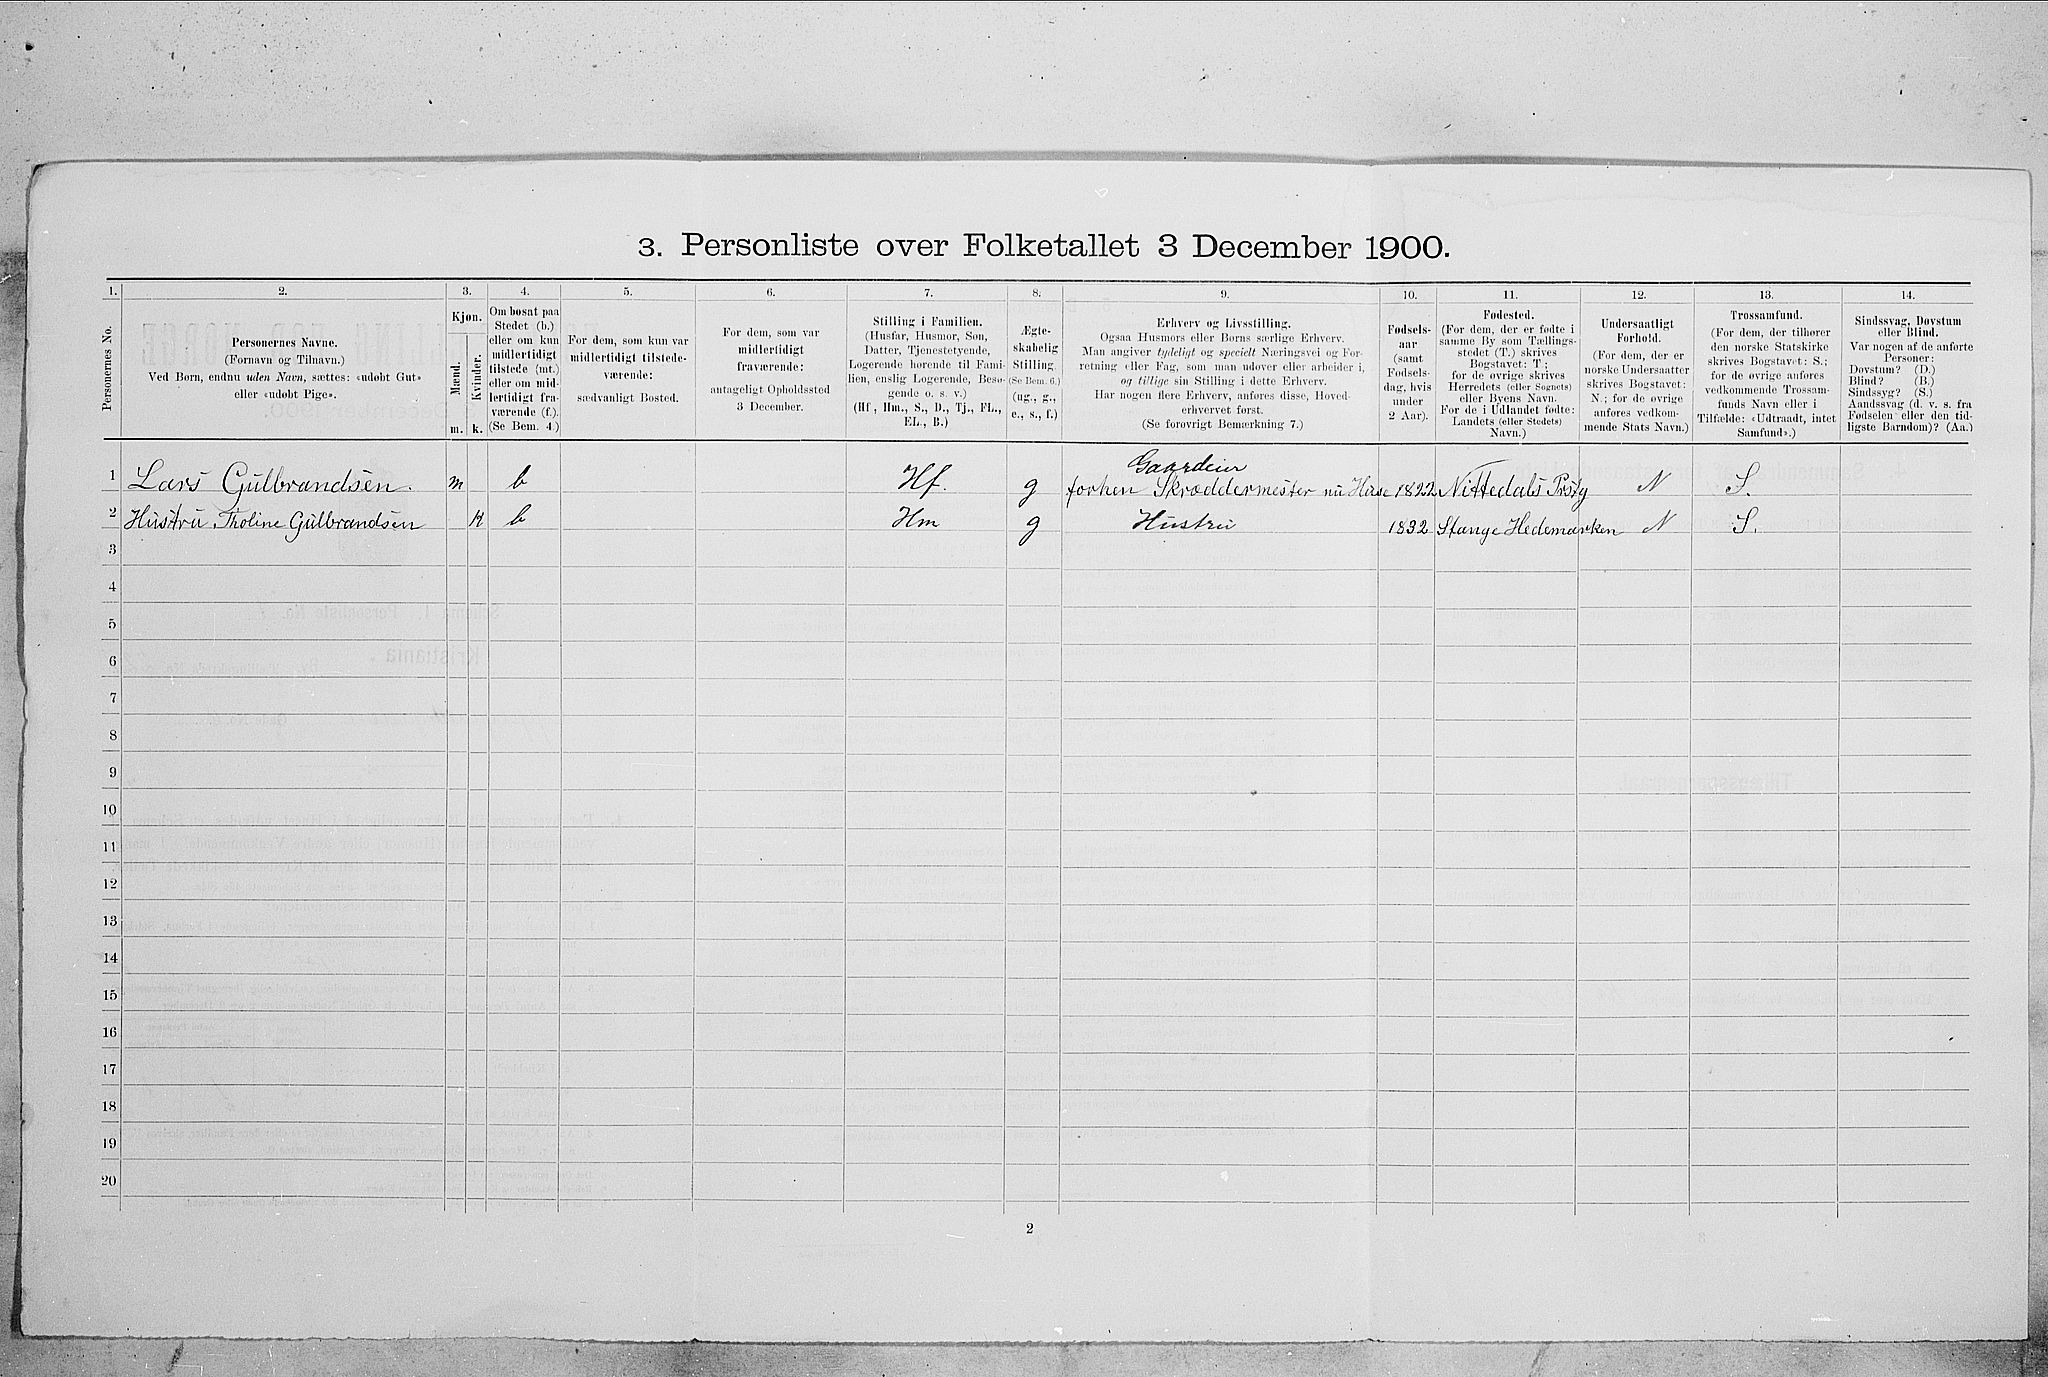 3. Personliste over Folketallet 3 December 1900.
1.
2.
3.
4.
5.
6.
7.
8.
9.
10.
11.
12.
13.
14.
Personernes No.
Personernes Navne.
(Fornavn og Tilnavn.)
Ved Børn, endnu uden Navn, sættes: «udøbt Gut»
eller «udøbt Pige».
Kjøn.
Mænd.
Kvinder.
m.
k.
Om bosat paa
Stedet (b.)
eller om kun
midlertidigt
tilstede (mt.)
eller om mid-
lertidigt fra-
værende (f.).
(Se Bem. 4.)
For dem, som kun var
midlertidigt tilstede-
værende:
sædvanligt Bosted.
For dem, som var
midlertidigt
fraværende:
antageligt Opholdssted
3 December.
Stilling i Familien.
(Husfar, Husmor, Søn,
Datter, Tjenestetyende,
Logerende hørende til Fami-
lien, enslig Logerende, Besø-
gende o. s. v.)
(Hf, Hm., S., D., Tj., FL.,
EL., B.)
Ægte-
skabelig
Stilling.
(Se Bem. 6.)
(ug., g.,
e., s., f.)
Erhverv og Livsstilling.
Ogsaa Husmors eller Børns særlige Erhverv.
Man angiver tydeligt og specielt Næringsvei og For-
retning eller Fag, som man udøver eller arbeider i,
og tillige sin Stilling i dette Erhverv.
Har nogen flere Erhverv, anføres disse, Hoved-
erhvervet først.
(Se forøvrigt Bemærkning 7.)
Fødsels-
aar
(samt
Fødsels-
dag, hvis
under
2 Aar).
Fødested.
(For dem, der er fødte i
samme By som Tællings-
stedet (T.) skrives
Bogstavet: T;
for de øvrige skrives
Herredets (eller Sognets)
eller Byens Navn.
For de i Udlandet fødte:
Landets (eller Stedets)
Navn.)
Undersaatligt
Forhold.
(For dem, der er
norske Undersaatter
skrives Bogstavet:
N.; for de øvrige
anføres vedkom-
mende Stats Navn.)
Trossamfund.
(For dem, der tilhører
den norske Statskirke
skrives Bogstavet: S.;
for de øvrige anføres
vedkommende Trossam-
funds Navn eller i
Tilfælde: «Udtraadt, intet
Samfund».)
Sindssvag, Døvstum
eller Blind.
Var nogen af de anførte
Personer:
Døvstum? (D.)
Blind? (B.)
Sindssyg? (S.)
Aandssvag (d. v. s. fra
Fødselen eller den tid-
ligste Barndom)? (Aa.)
Gaardeier
1 Lars Gulbrandsen. m b Hf. g forhen Skræddermester nu 1822 Nittedals N S.
2 Hustru Tholine Gulbrandsen K b Hm g Hustru 1832 Stange Hedemarken N S.
3
4
5
6
7
8
9
10
11
12
13
14
15
16
17
18
19
20
2